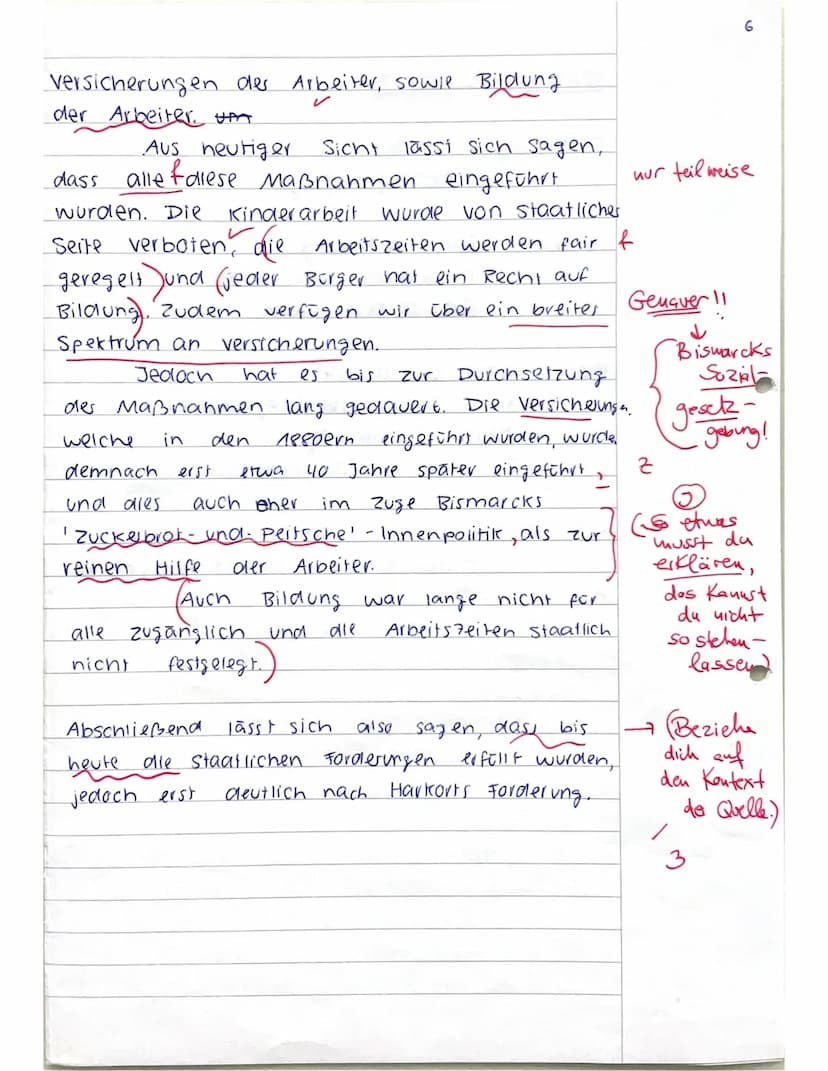 6
Versicherungen der Arbeiter, sowie Bildung
der Arbeiter.
Aus heutiger Sicht lässt sich sagen,
dass alle diese Maßnahmen eingeführt
nur teilweise
wurden. Die Kinderarbeit wurde von staatlicher
Seite verboten, die Arbeitszeiten werden fair
f
geregelt und jeder Bürger hat ein Recht auf
Bildung. Zudem verfügen wir über ein breites
Genauer!!
Spektrum an Versicherungen.
Bismarcks
Jedoch hat es bis zur Durchsetzung
Sozial-
der Maßnahmen lang gedauert. Die Versicherungen,
gesetz-
welche in den 1880ern eingeführt wurden, wurden
gebung!
demnach erst etwa 40 Jahre später eingeführt,
Z
und dies auch eher im Zuge Bismarcks
'Zuckerbrot- und- Peitsche' - Innenpolitik, als zur
(So etwas
musst du
reinen Hilfe der Arbeiter.
erklären,
Auch Bildung war lange nicht für
das kannst
du nicht
alle zugänglich und die Arbeitszeiten staatlich
so stehen-
nicht festgelegt.
lassen)
Abschließend lässt sich also sagen, dass bis
→ (Beziehe
heute die staatlichen Forderungen erfüllt wurden,
dich auf
den Kontext
jedoch erst deutlich nach Harkorts Forderung.
der Quelle.)
3